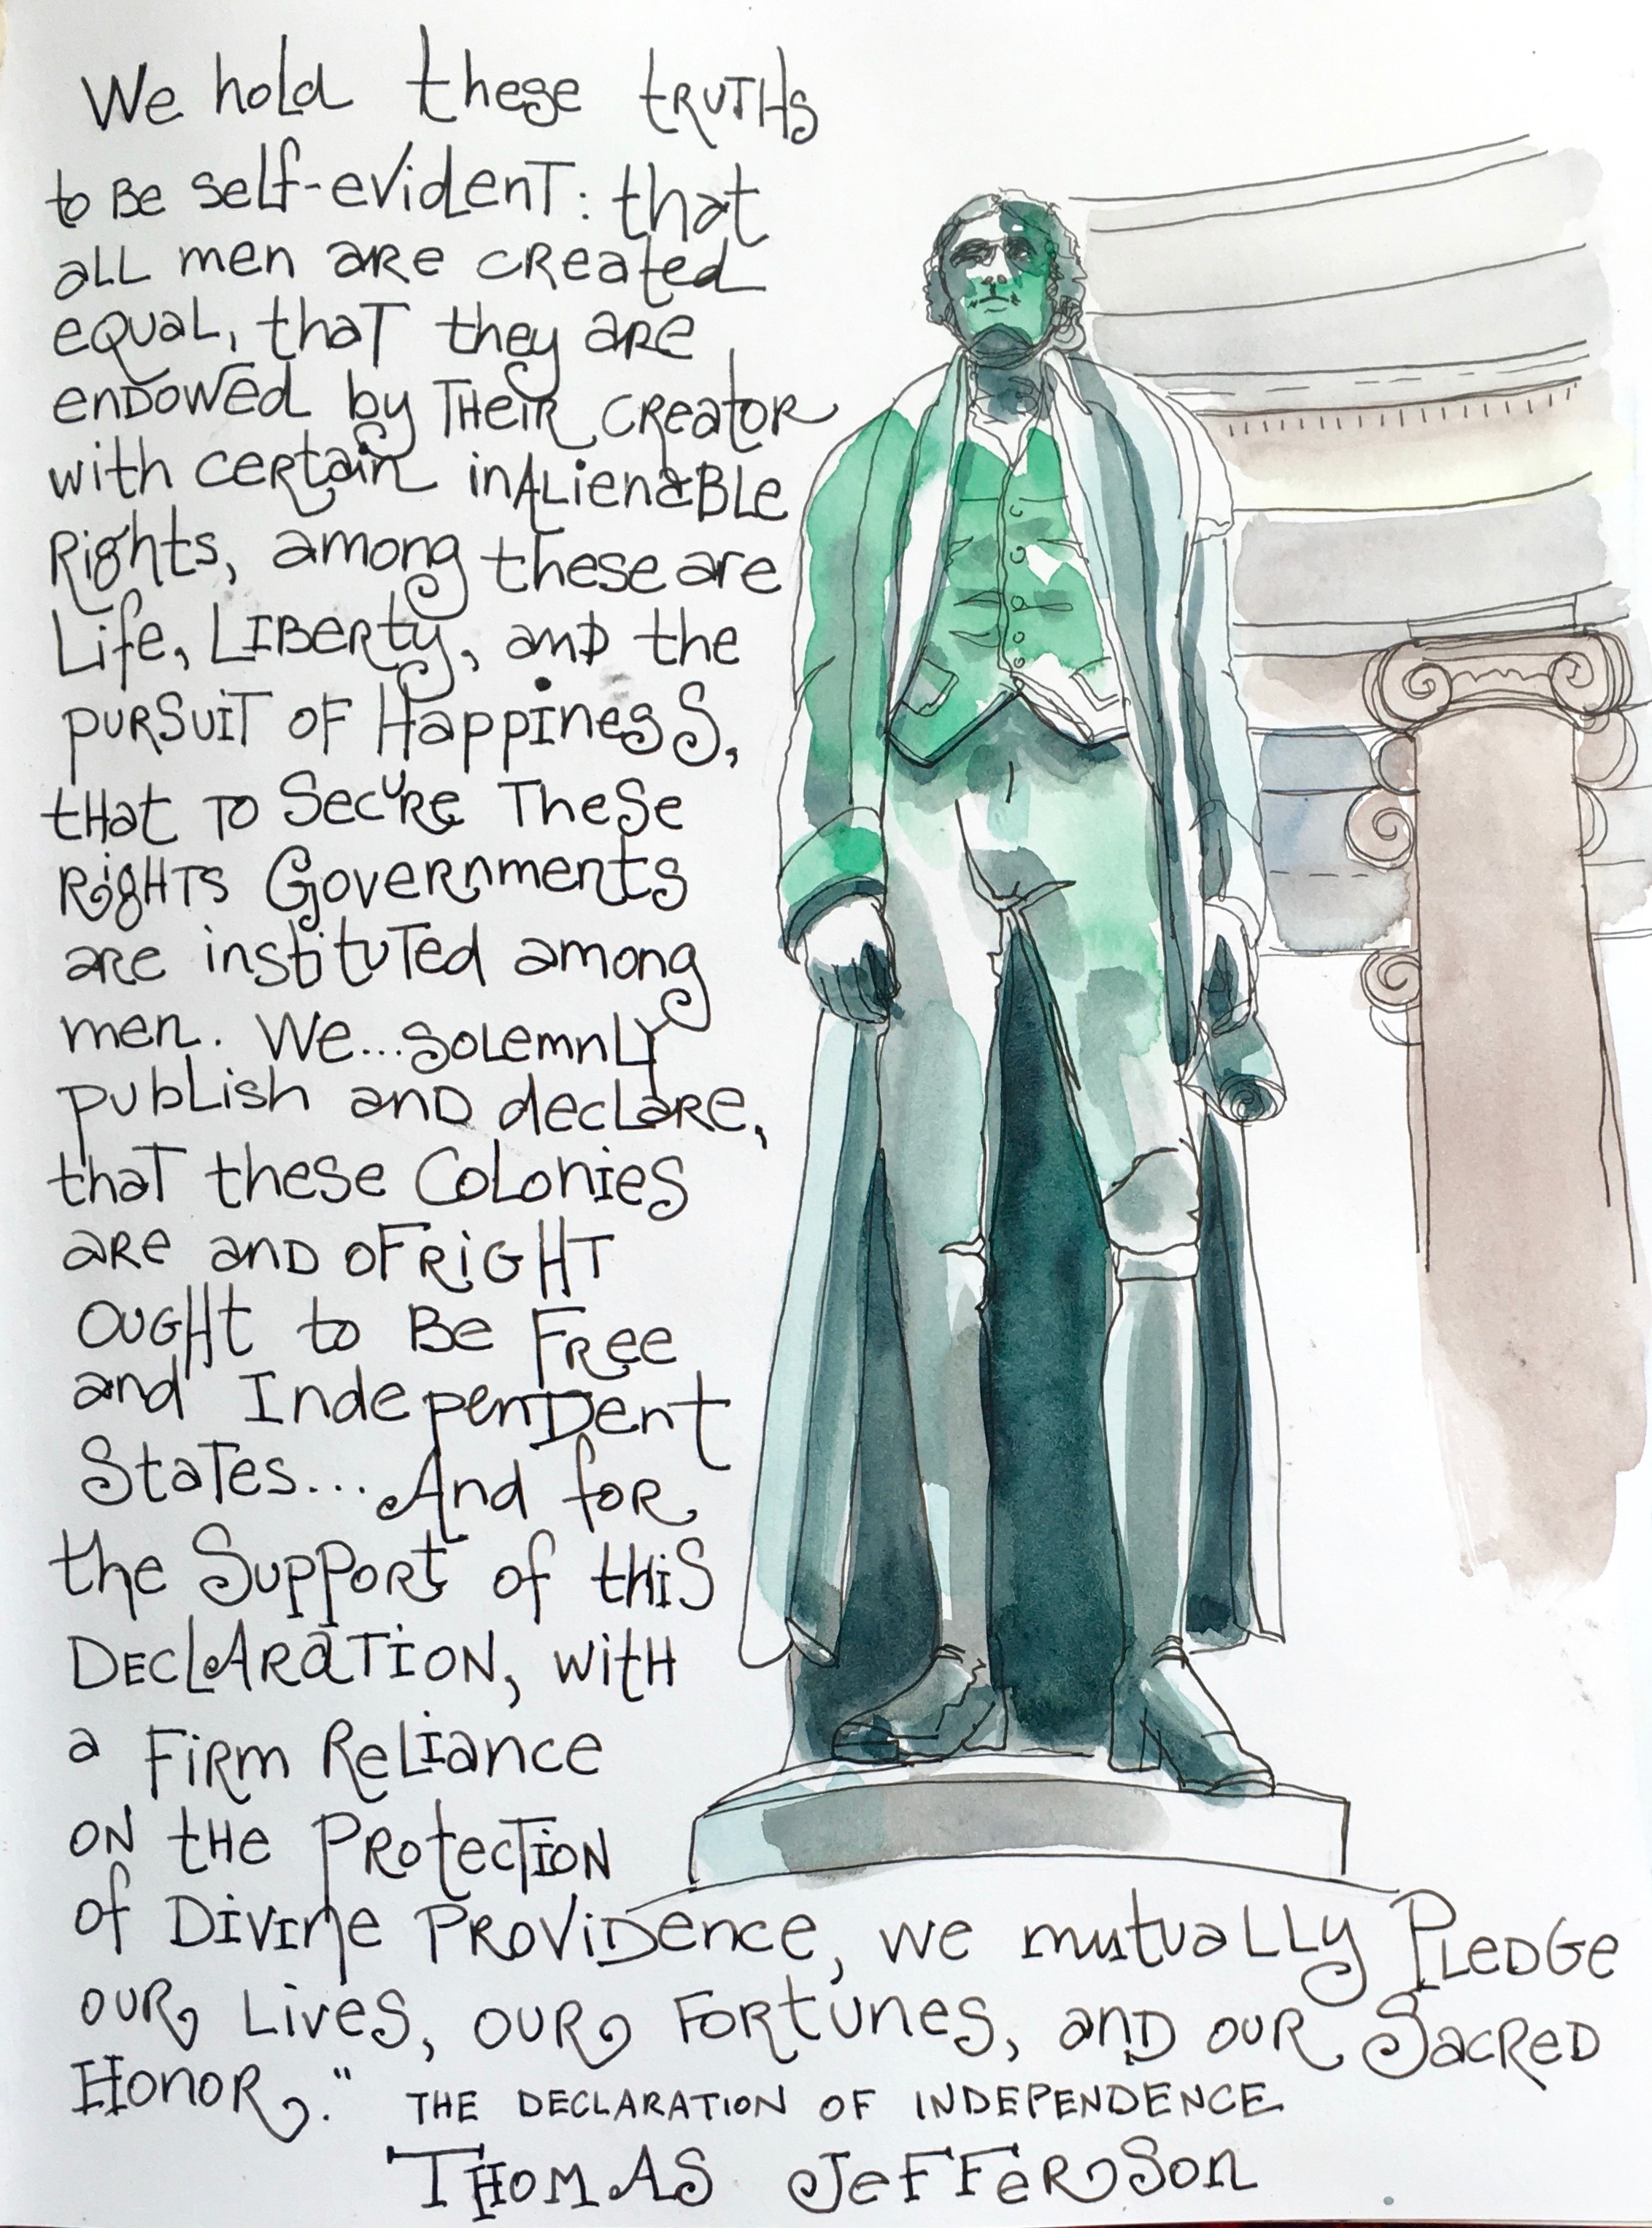 We hold these truths
to Be self-evident: that
all men are created
equal, that they are
endowed by Their Creator
with certain inalienable
Rights, among these are
Life, Liberty, and the
pursuit of Happiness,
that to Secure These
Rights Governments
are instituted among
men. We...solemnly
publish and declare,
that these Colonies
are and of Right
ought to Be Free
and Independent
States... And for
the Support of this
Declaration, with
a Firm Reliance
on the Protection
of Divine Providence, we mutually Pledge
our Lives, our Fortunes, and our Sacred
Honor." THE DECLARATION OF INDEPENDENCE
Thomas Jefferson